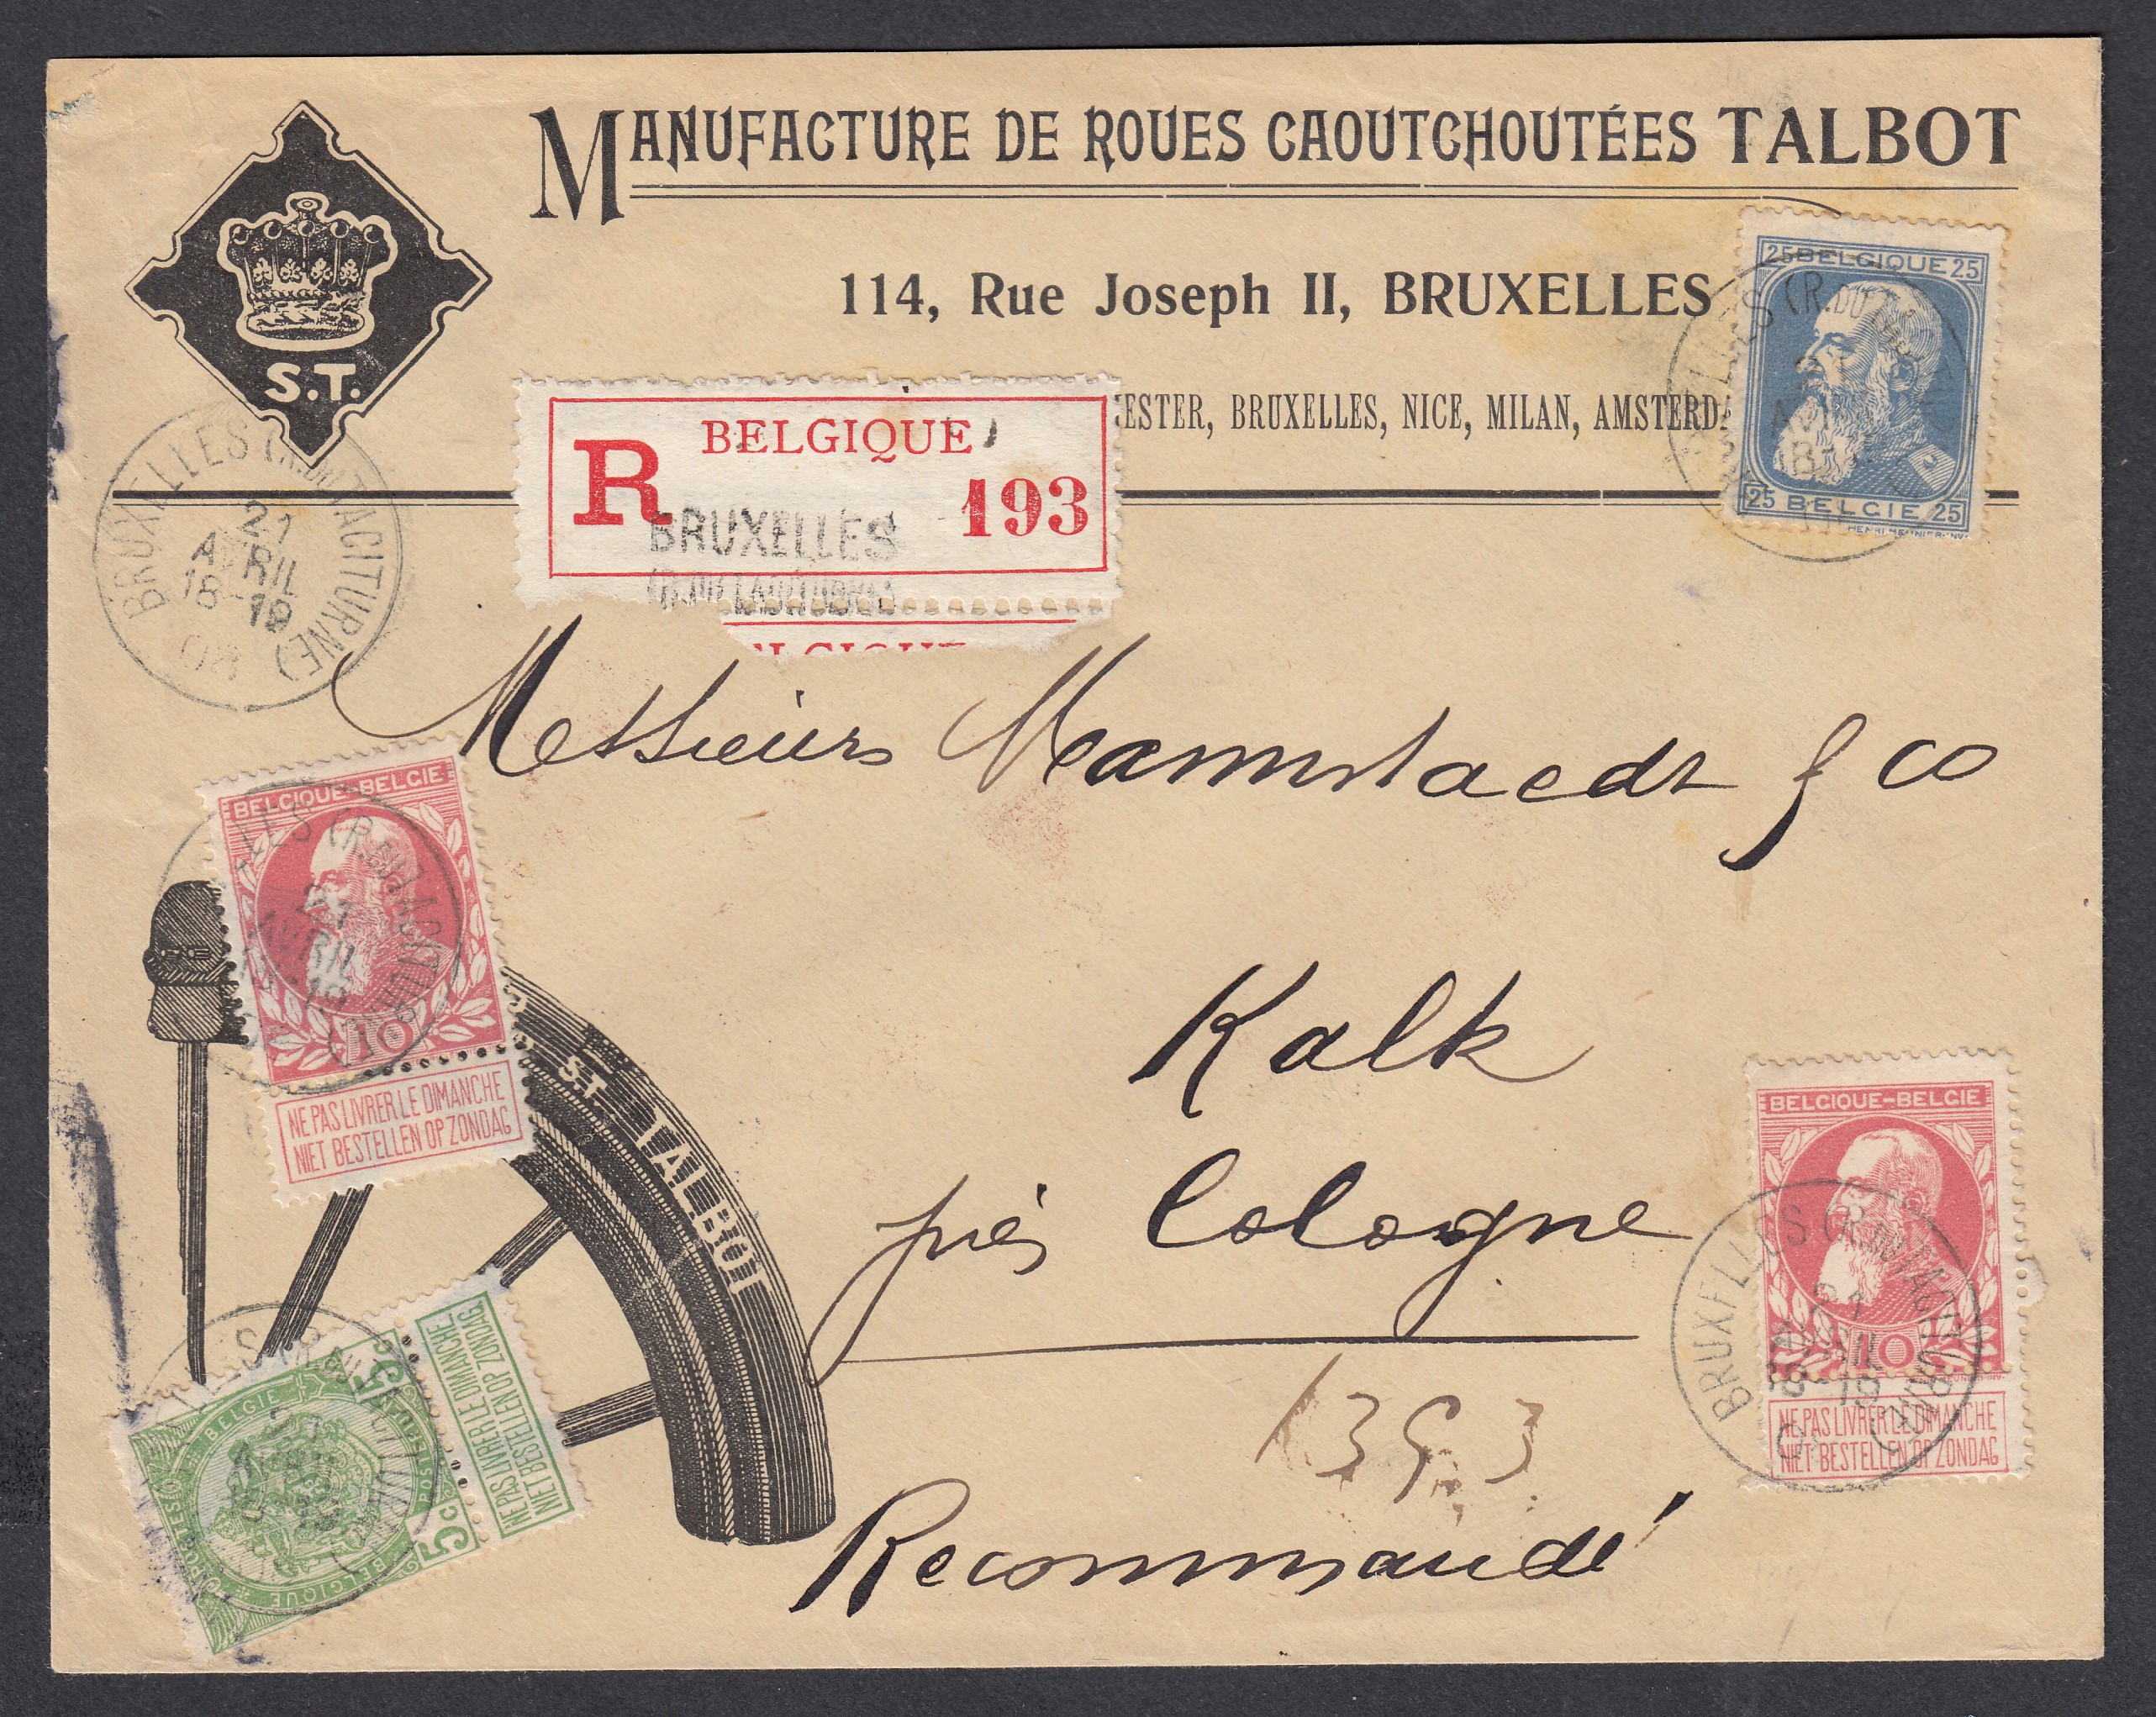 MANUFACTURE DE ROUES CAOUTCHOUTÉES TALBOT
114, Rue Joseph II, BRUXELLES
ESTER, BRUXELLES, NICE, MILAN, AMSTERDA
S.T.
BELGIQUE
R
193
BRUXELLES
BRUXELLES (R. DU TACITURNE)
21
AVRIL
18-19
25 BELGIQUE 25
BRUXELLES (R. DU TACITURNE)
25 BELGIE 25
Messieurs Mannstaedt & Co
Kalk
près Cologne
1393
Recommandé
BELGIQUE-BELGIE
21
AVRIL
18-19
10
NE PAS LIVRER LE DIMANCHE
NIET BESTELLEN OP ZONDAG
S.T. TALBOT
5c
BELGIE
BELGIQUE
5c
NE PAS LIVRER LE DIMANCHE
NIET BESTELLEN OP ZONDAG
BELGIQUE-BELGIE
BRUXELLES (R. DU TACITURNE)
21
AVRIL
18-19
10
NE PAS LIVRER LE DIMANCHE
NIET BESTELLEN OP ZONDAG